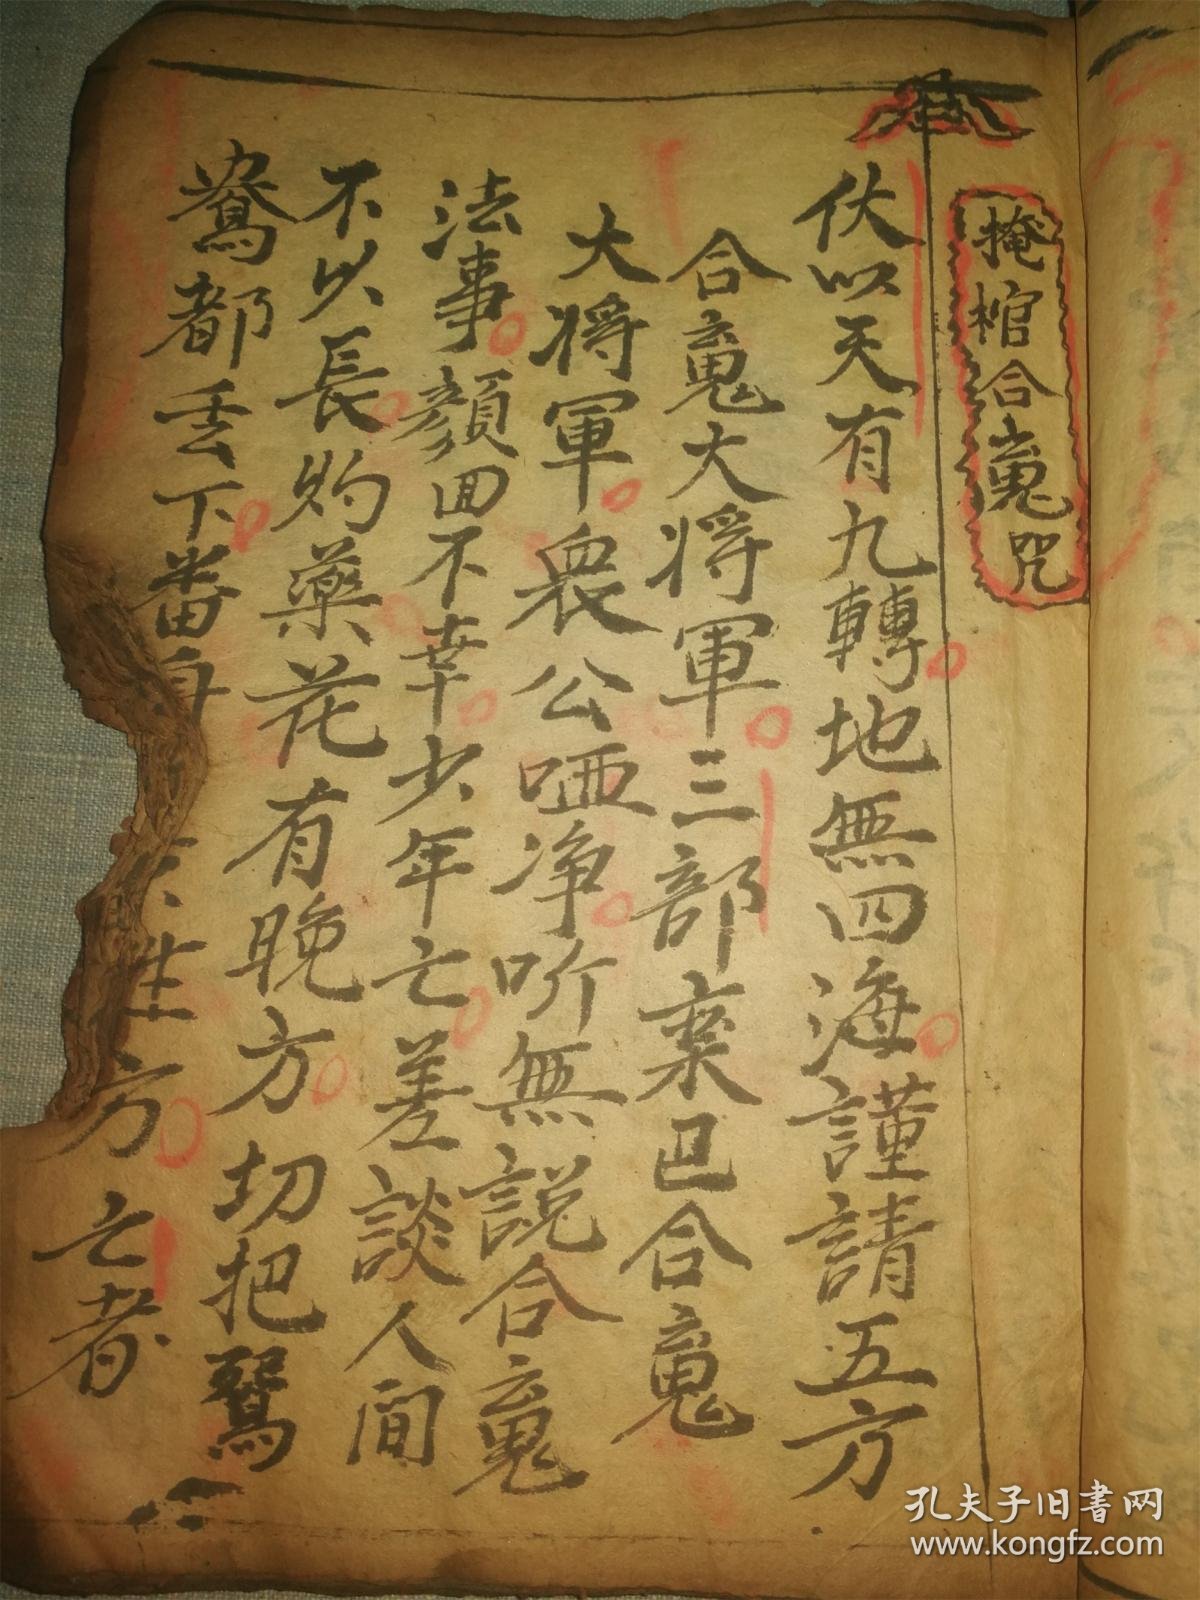 掩棺合䰟咒
伏以天有九轉地無四海謹請五方
合䰟大将軍三部棄巴合䰟
大将軍衆公哂净吤無説合䰟
法事顔回不幸少年亡差談人間
不以長灼藥花有晚方切把鴛
鴦都丢下番身 方亡者
孔夫子旧書网
www.kongfz.com